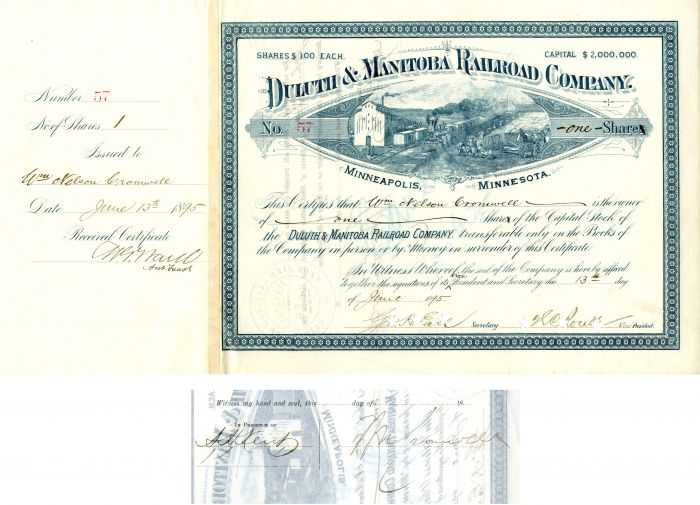 Number 57
No. of Shares 1
Issued to
Wm Nelson Cromwell
Date June 13th 1895
Received Certificate
SHARES $ 100 EACH.
CAPITAL $ 2,000,000.
DULUTH & MANITOBA RAILROAD COMPANY.
No. 57
-one- Share
MINNEAPOLIS, MINNESOTA.
This Certifies that Wm Nelson Cromwell is the owner
of one Share of the Capital Stock of
the DULUTH & MANITOBA RAILROAD COMPANY. transferable only on the Books of
the Company in person or by Attorney on surrender of this Certificate
In Witness Whereof the seal of the Company is hereby affixed
together the signatures of its Vice President and Secretary this 13th day
of June 1895
Secretary
Vice President.
Witness my hand and seal, this day of 18
IN PRESENCE OF
MINNEAPOLIS